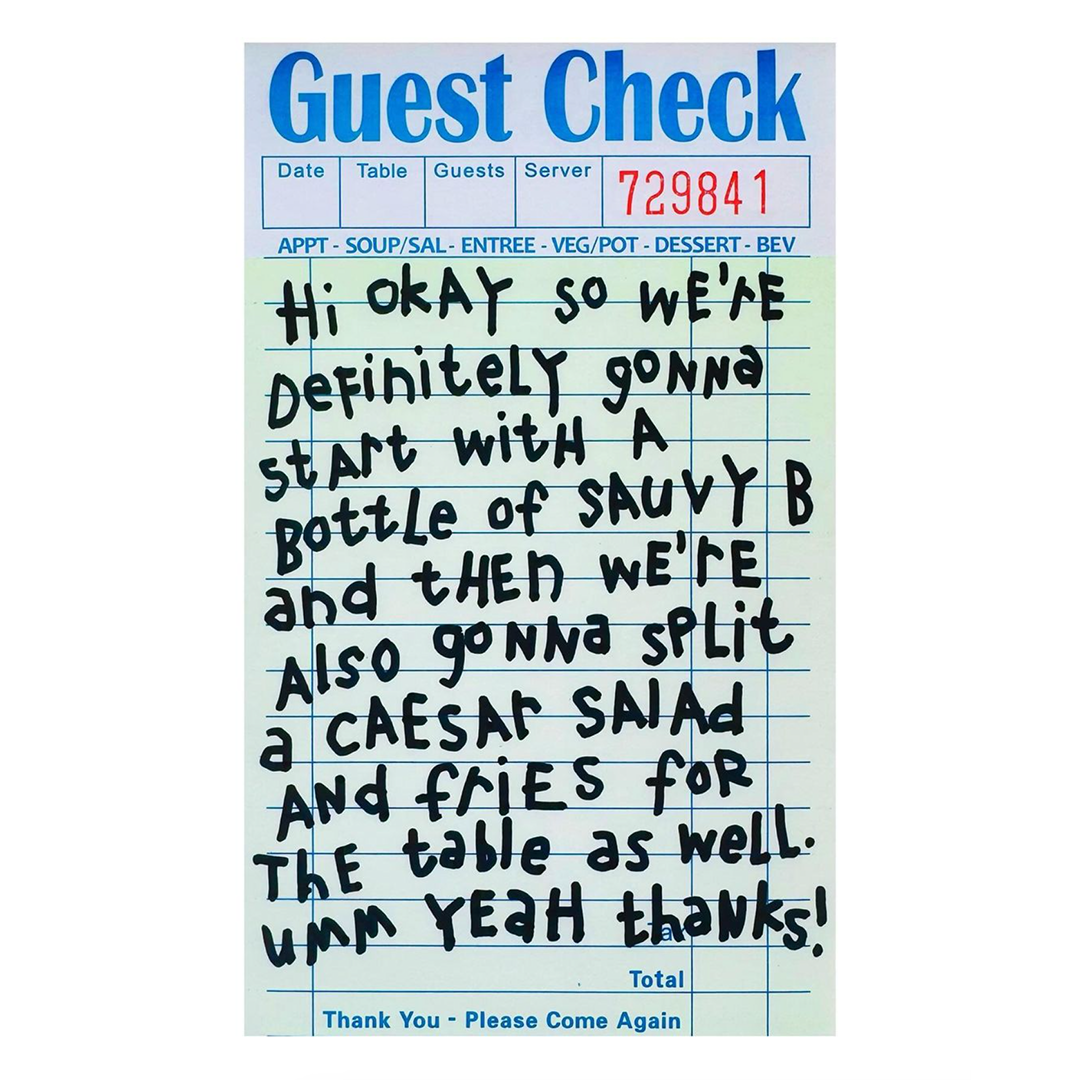 Guest Check
Date Table Guests Server 729841
APPT - SOUP/SAL - ENTREE - VEG/POT - DESSERT - BEV
Hi okAY so wE'rE
DeFiniteLY gonna
stArt witH A
BottLe of SAUVY B
and tHEn wE'rE
Also gonna sPLit
a CAESAr SAlAd
ANd friES foR
ThE table as weLL.
umm YEaH thaNks!
Tax
Total
Thank You - Please Come Again